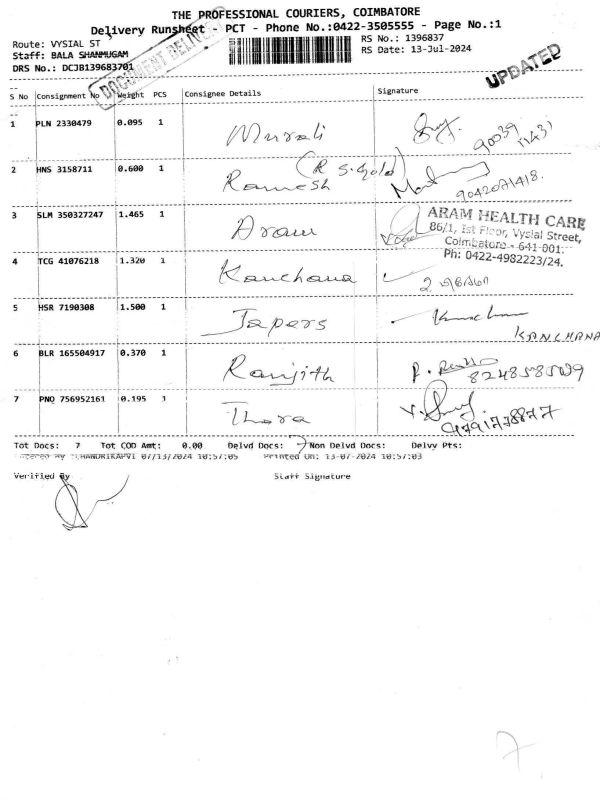 THE PROFESSIONAL COURIERS, COIMBATORE
Delivery Runsheet - PCT - Phone No.:0422-3505555 - Page No.:1
Route: VYSIAL ST
RS No.: 1396837
Staff: BALA SHANMUGAM
RS Date: 13-Jul-2024
DRS No.: DCJB139683701
DOCUMENT DELIVERED
UPDATED
S No Consignment No Weight PCS Consignee Details Signature
1 PLN 2330479 0.095 1 Murali
2 HNS 3158711 0.600 1 Ramesh (R S. Gold) 9042071418.
3 SLM 350327247 1.465 1 Aram
ARAM HEALTH CARE
86/1, Ist Floor, Vysial Street,
Coimbatore - 641 001.
Ph: 0422-4982223/24.
4 TCG 41076218 1.320 1 Kanchana
5 HSR 7190308 1.500 1 Japers
KANCHANA
6 BLR 165504917 0.370 1 Ranjith
7 PNQ 756952161 0.195 1 Thara 9791778877
Tot Docs: 7 Tot COD Amt: 0.00 Delvd Docs: 7 Non Delvd Docs: Delvy Pts:
Entered By :CHANDRIKAPVI 07/13/2024 10:57:05 Printed On: 13-07-2024 10:57:03
Verified By Staff Signature
7